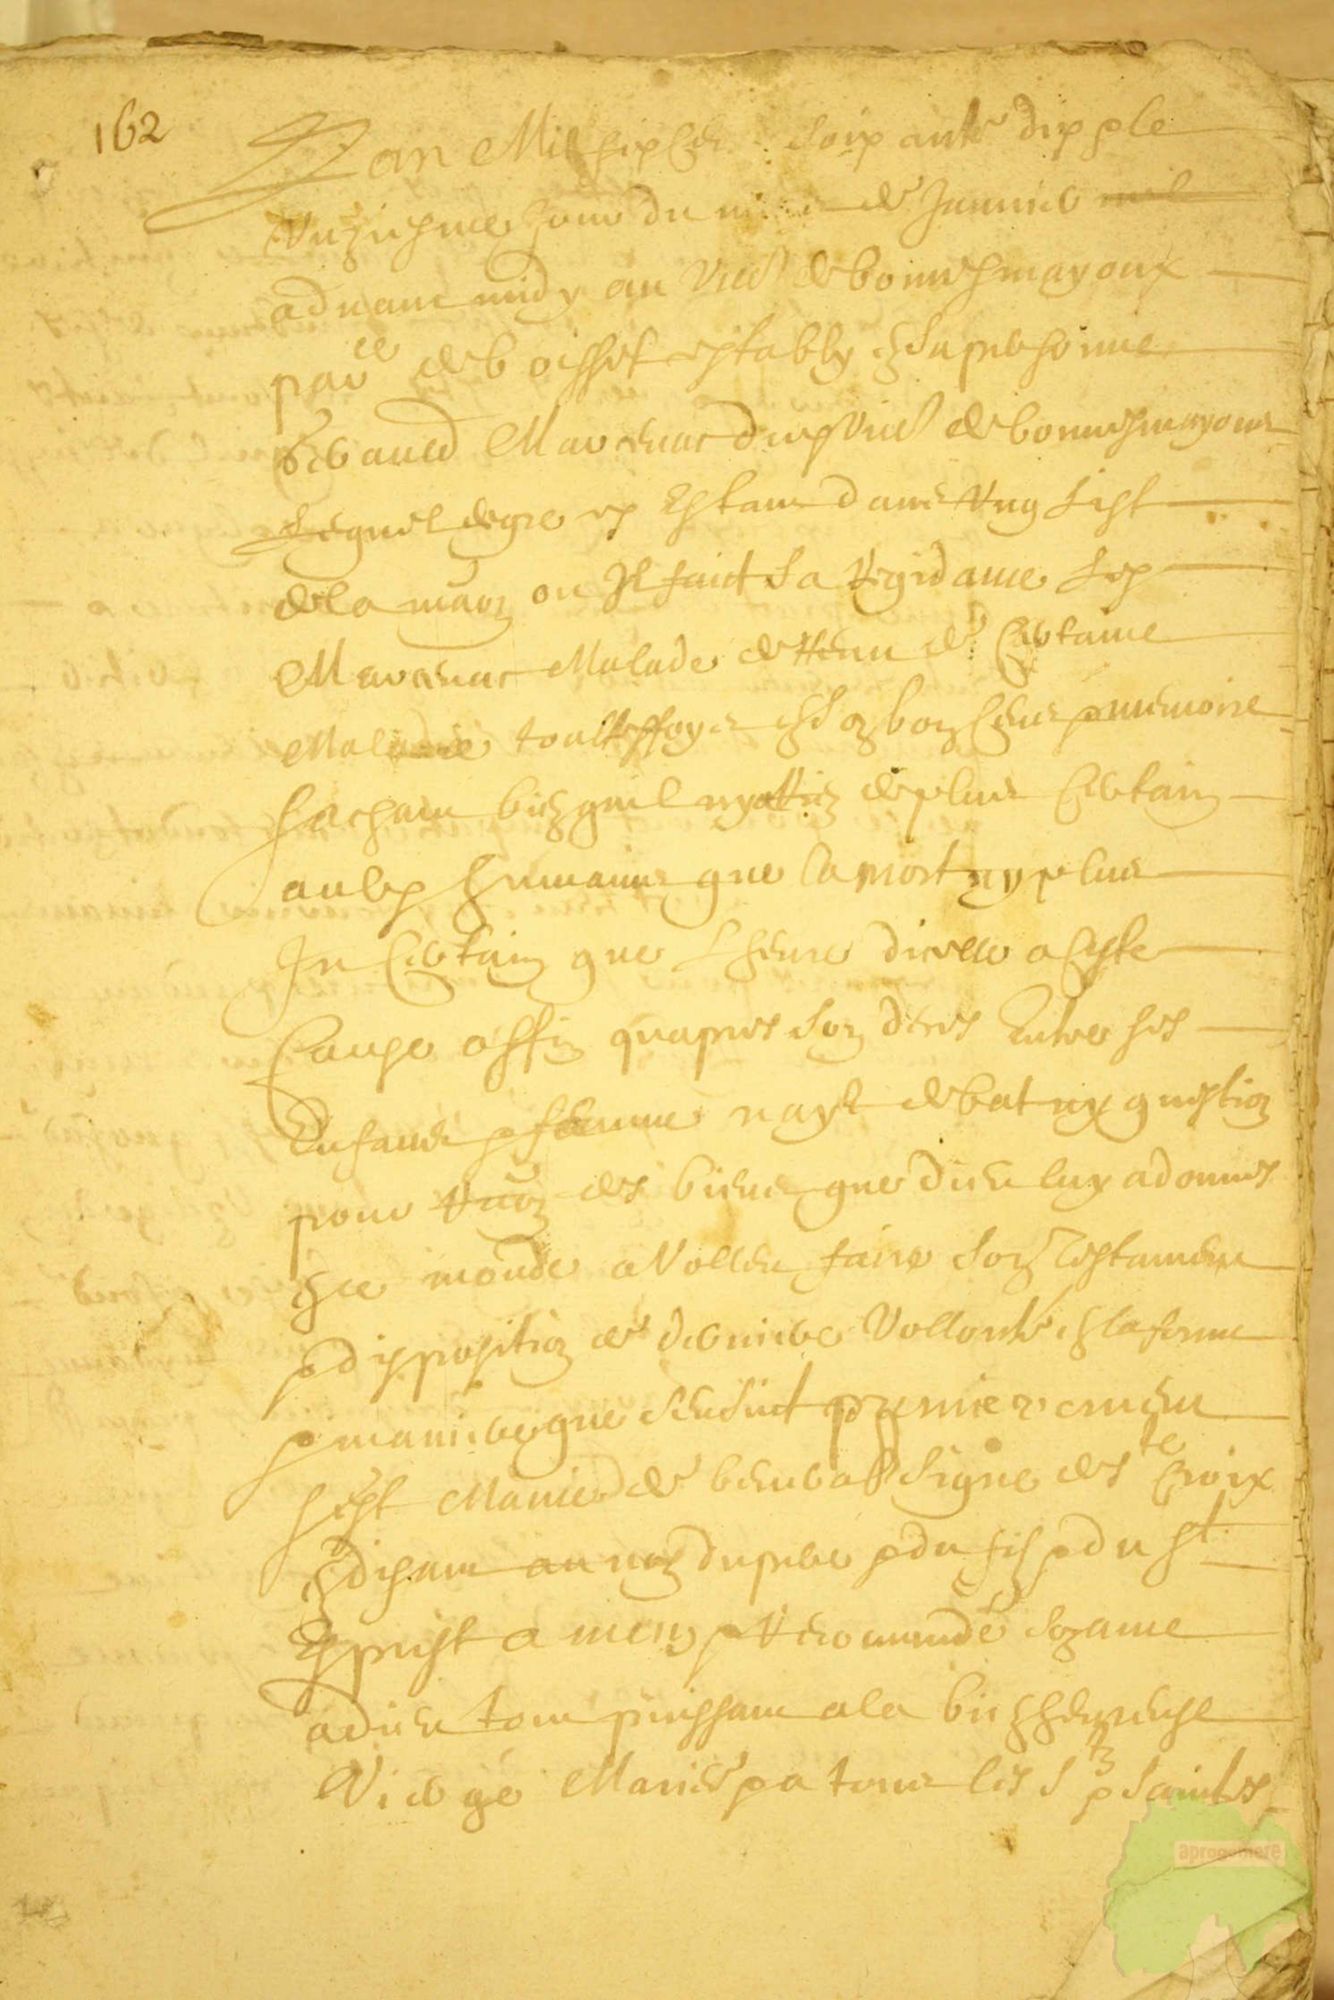 162
Lan Mil six cens soixante dix & le
unziesme jour du mois de Janvier
advant midy au villa de bonnesmayoux
par ce de boisset estably en sa personne
Geraud Marcenac du villa de bonnesmayoux
Lequel de gre estant dans ung list
de la maon ou Il faict sa residance led
Marcenac Malade detenu de Certaine
Maladie touttesffoys en son bon sens & memoire
sachant bien quil ny a rien de plus Certain
aulx humains que la mort ny plus
In Certain que Lheure dicelle a ceste
Cause affin quapres son deces Entre ses
Enfans & femme nayt debat ny question
pour raon des biens que dieu luy a donnes
en ce monde a volleu faire son testament
& disposition de derniere Vollonte en la forme
& maniere que sensuit premierement
sest Manie de venerable signe de ste Croix
en disant au nom du pere & du fis & du st
Esprist amen & recomande son ame
a dieu tout puissant a la bien heureuse
Vierge Marie & a tous les Sts & Sainctes
aprogemere